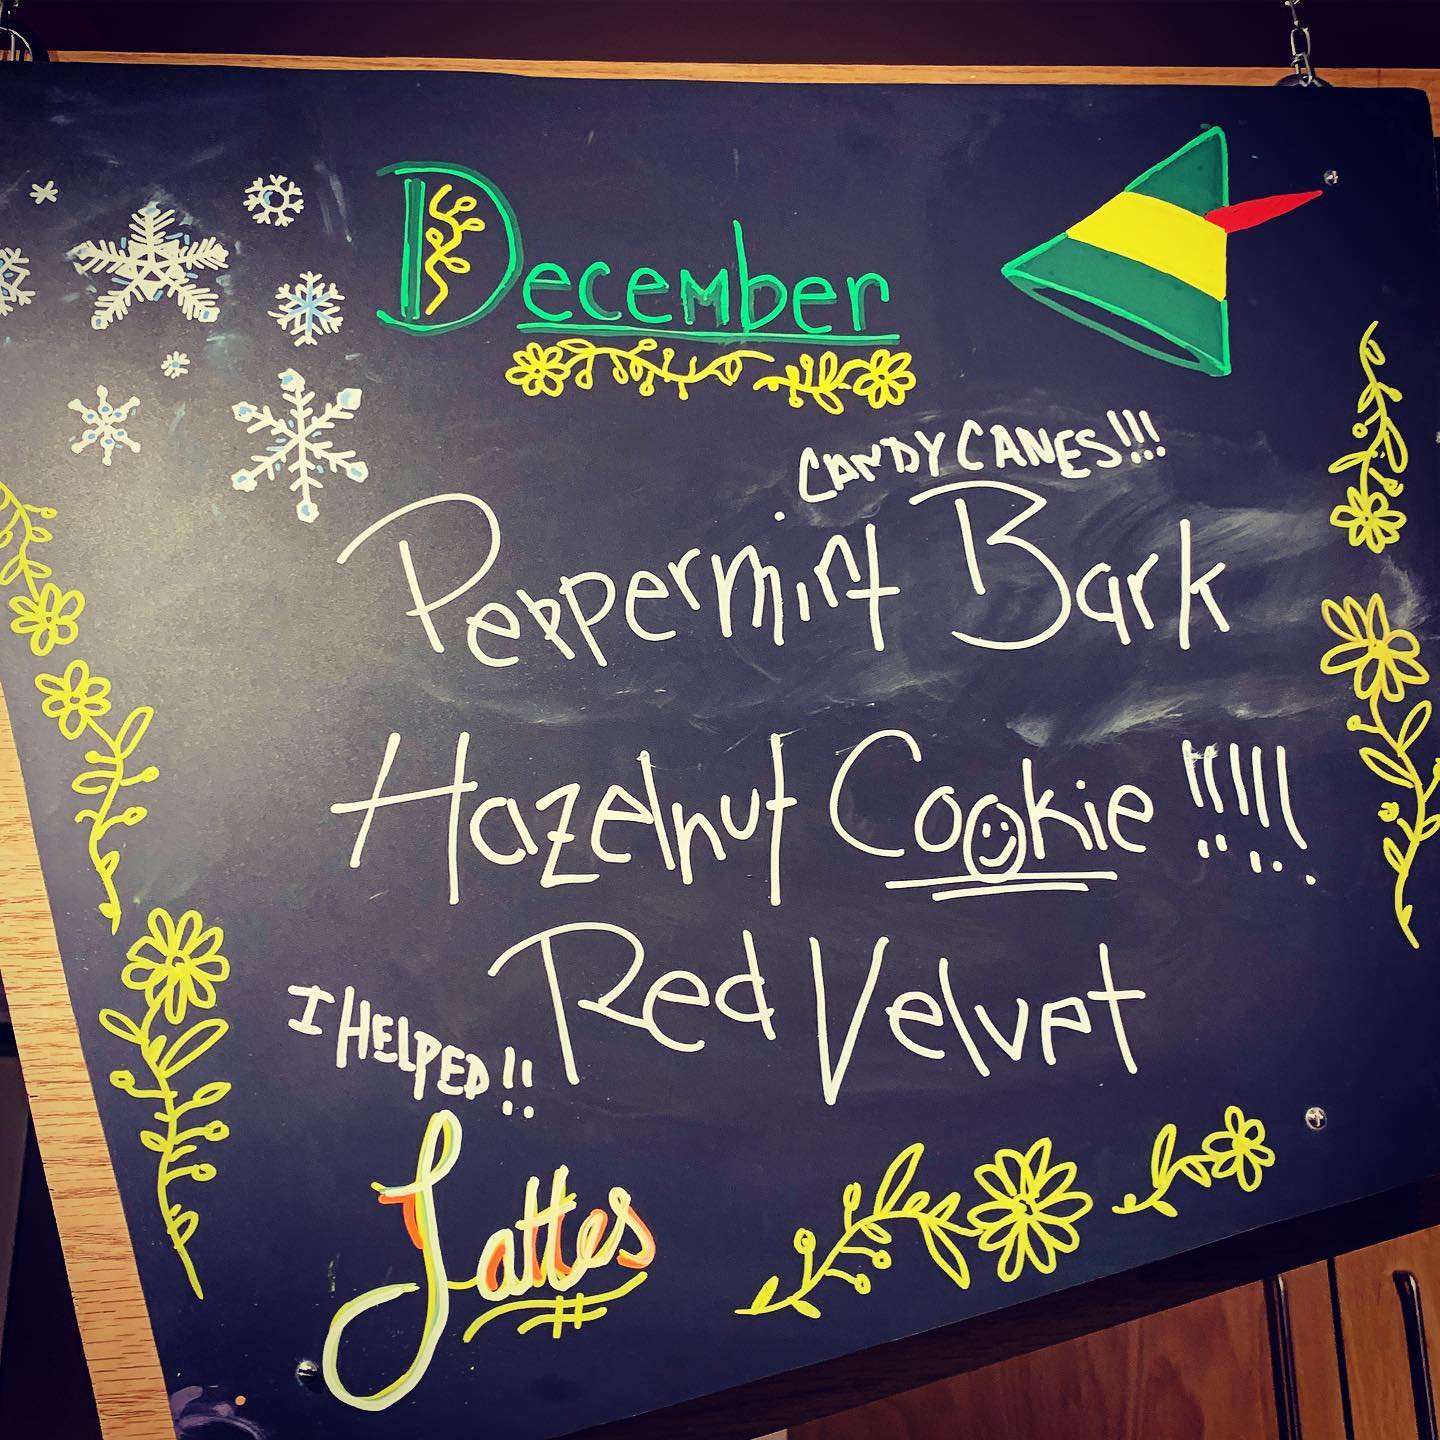 December
CANDY CANES!!!
Peppermint Bark
Hazelnut Cookie !!!!!
Red Velvet
I HELPED!!
Lattes